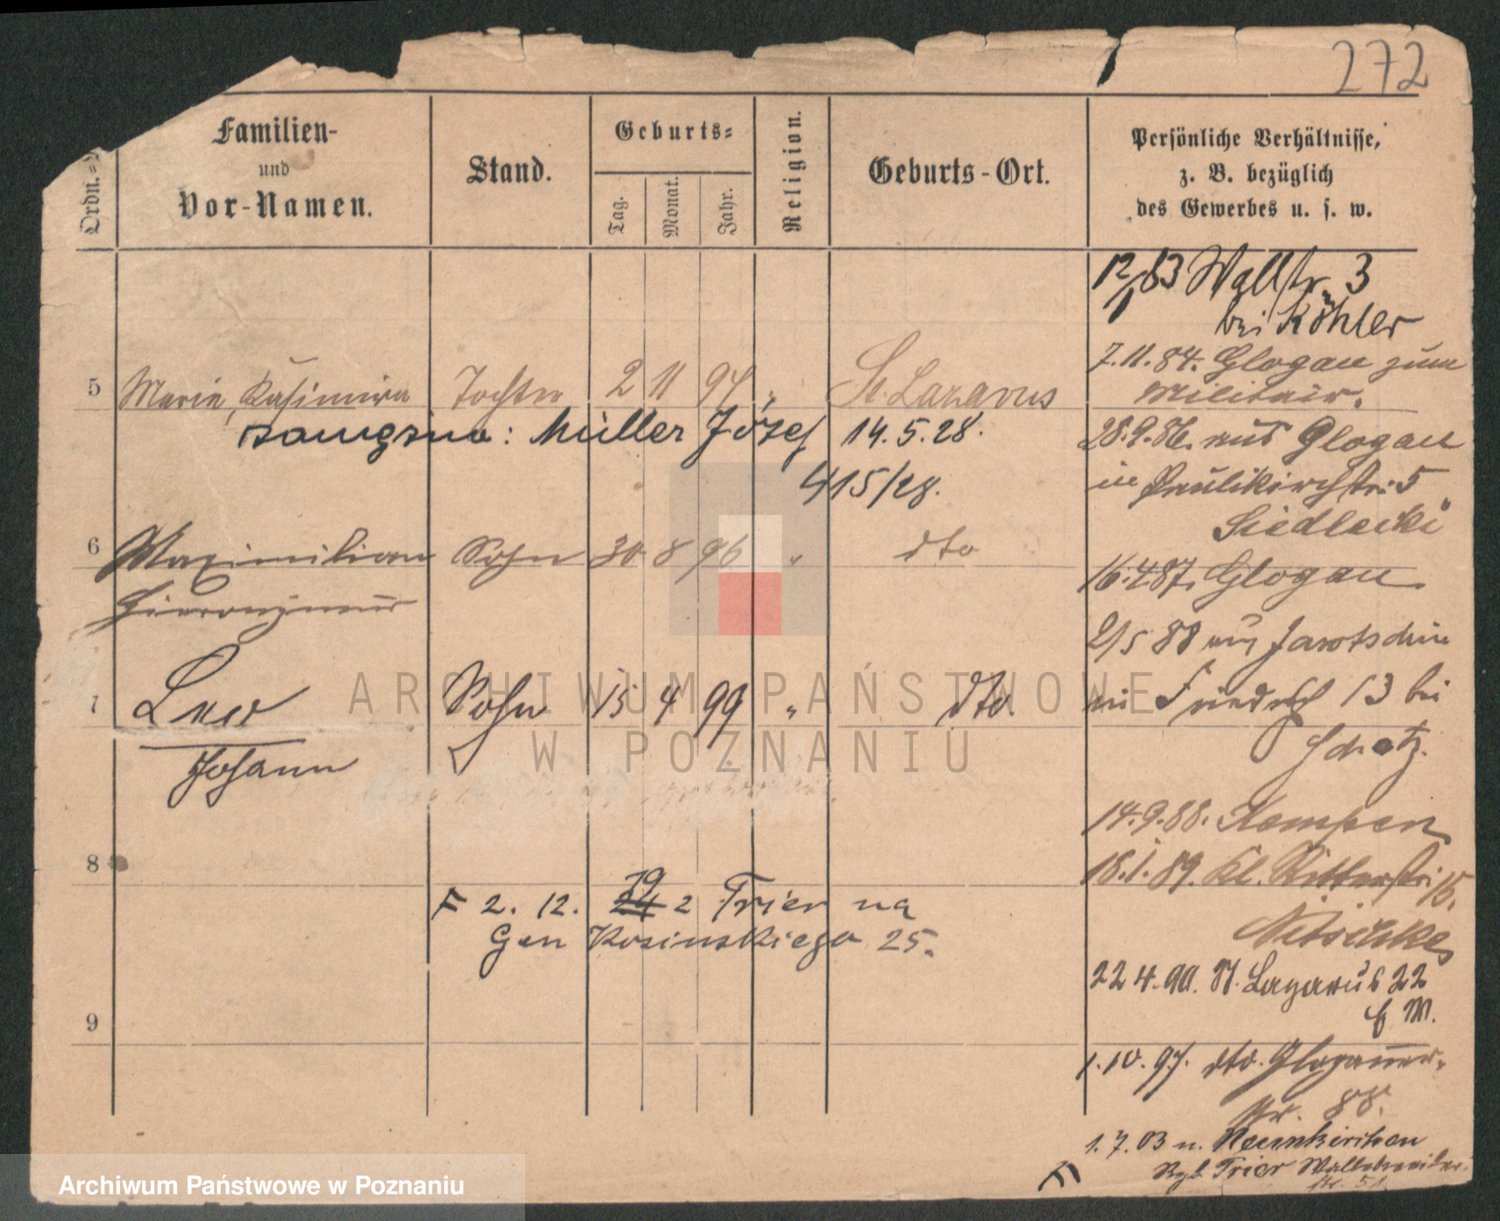 272
Ordn.=
Familien-
und
Vor-Namen.
Stand.
Geburts=
Tag.
Monat.
Jahr.
Religion.
Geburts-Ort.
Persönliche Verhältnisse,
z. B. bezüglich
des Gewerbes u. s. w.
5 Marie, Kasimira Tochter 2 11 94 „ St. Lazarus
zamężna: Müller Józef 14.5.28.
415/28.
6 Maximilian Sohn 30 8 96 „ dto
Hieronymus
7 Leo Sohn 15 4 99 „ dto.
Johann
8
F 2. 12. 24 19 2 Trier na
Gen Kosinskiego 25.
9
12/83 Wallstr. 3
bei Köhler
7.11.84. Glogau zum
Militair.
28.9.86. aus Glogau
in Paulikirchstr. 5
Siedlecki
16.4.87. Glogau
2/5 88 aus Jarotschin
in Friedrich 13 bei
Schatz.
14.9.88. Kempen
18.1.89. Kl. Ritterstr. 15.
Nitschke
22 4.90. St. Lazarus 22
b M.
1.10.97. dto. Glogauer-
str. 88.
1.7.03 n. Neunkirchen
Rgb. Trier
Str. 51
F
ARCHIWUM PAŃSTWOWE
W POZNANIU
Archiwum Państwowe w Poznaniu